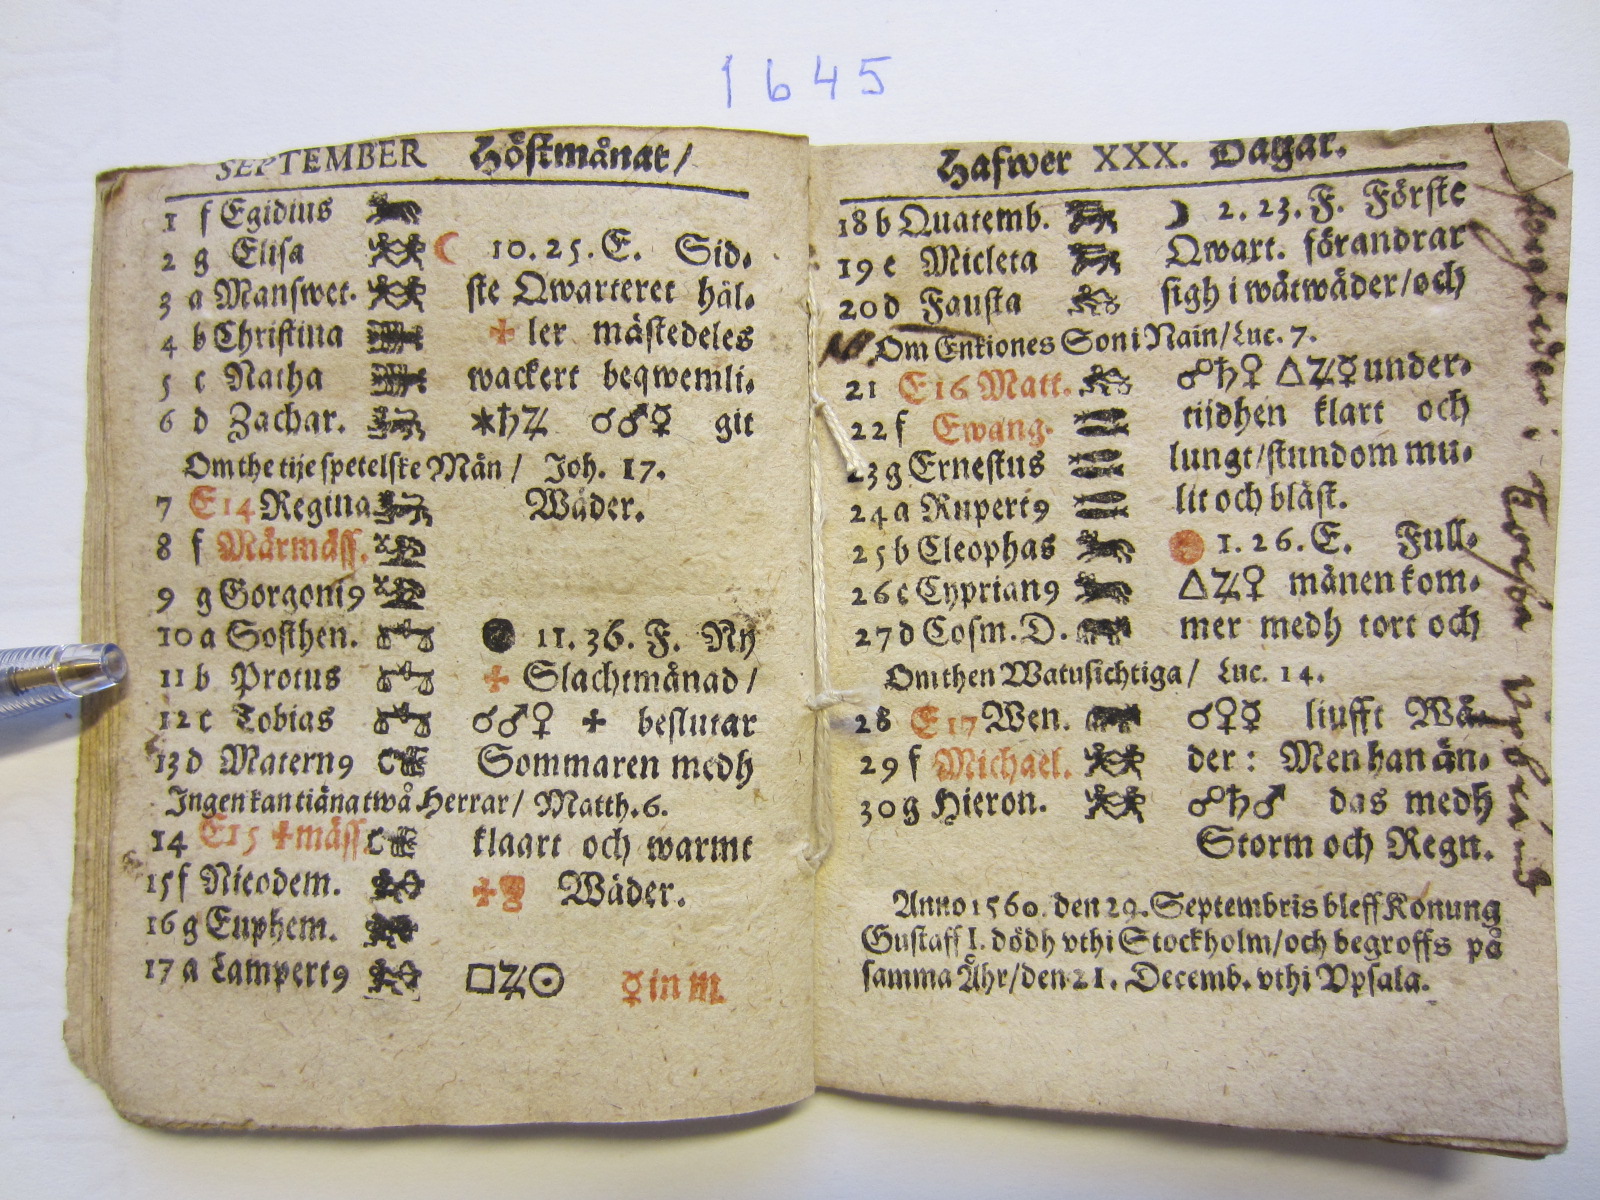 1645
SEPTEMBER Höstmånat/
1 f Egidius
2 g Elisa ☾ 10.25.E. Sid⸗
3 a Manswet. ste Qwarteret häl⸗
4 b Christina ✠ ler mästedeles
5 c Natha wackert beqwemli⸗
6 d Zachar. ⚹♄♃ ☌♂☿ git
Om the tije spetelske Män / Joh. 17.
7 E14 Regina Wäder.
8 f Mårmäss.
9 g Gorgoni9
10 a Sosthen. ● 11.36.F. Ny
11 b Protus ✠ Slachtmånad /
12 c Tobias ☌♂♀ ✠ beslutar
13 d Matern9 Sommaren medh
Ingen kan tiäna twå Herrar/ Matth. 6.
14 E15 ✠mäss klaart och warmt
15 f Nicodem. ✠ Wäder.
16 g Euphem.
17 a Lampert9 □♃☉ ☿ in ♏
Hafwer XXX. Dagar.
18 b Quatemb. ☽ 2.23.F. Förste
19 c Micleta Qwart. förandrar
20 d Fausta sigh i wåtwäder/och
Om Enkiones Son i Nain/Luc. 7.
21 E16 Matt. ☍♄♀ △♃☿ under⸗
22 f Ewang. tijdhen klart och
23 g Ernestus lungt/stundom mu⸗
24 a Rupert9 lit och blåst.
25 b Cleophas 1.26.E. Full⸗
26 c Cyprian9 △♃♀ månen kom⸗
27 d Cosm.D. mer medh tort och
Om then Watusichtiga / Luc. 14.
28 E17 Wen. ☌♀☿ liufft Wä⸗
29 f Michael. der : Men han än⸗
30 g Hieron. ☍♄♂ das medh
Storm och Regn.
Anno 1560. den 29. Septembris bleff Konung
Gustaff I. dödh vthi Stockholm/och begroffs på
samma Åhr/den 21. Decemb. vthi Vpsala.